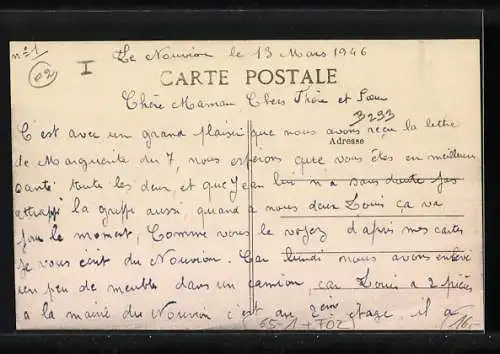 n° 1
Le Nouvion le 13 Mars 1946
02
I
CARTE POSTALE
Chère Maman Chers Frère et Soeur
3293
C'est avec un grand plaisir que nous avons reçu la lettre
Adresse
de Marguerite du 7, nous espérons que vous êtes en meilleur
santé toutes les deux, et que Jean lui n'a sans doute pas
attrappé la grippe aussi, quand a nous deux Louis ça va
pour le moment, Comme vous le voyez d'après mes cartes
je vous écrit du Nouvion. Car lundi nous avons enlevé
un peu de meuble dans un camion, car Louis a 2 pièces
a la mairie du Nouvion c'est au 2eme étage, il a
(65-1 + TO2)
16-